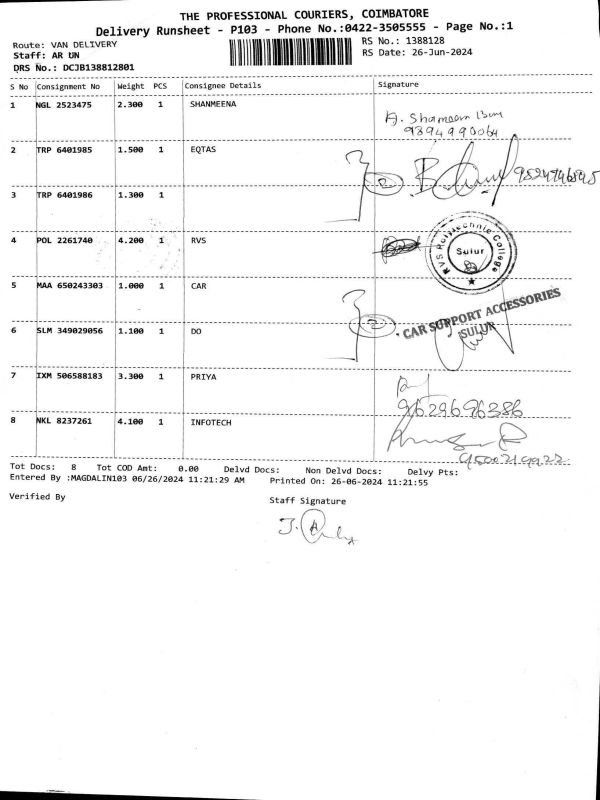 THE PROFESSIONAL COURIERS, COIMBATORE
Delivery Runsheet - P103 - Phone No.:0422-3505555 - Page No.:1
Route: VAN DELIVERY
RS No.: 1388128
Staff: AR UN
RS Date: 26-Jun-2024
DRS No.: DCJB138812801
S No Consignment No Weight PCS Consignee Details Signature
1 NGL 2523475 2.300 1 SHANMEENA
A. Shameem
9894990064
2 TRP 6401985 1.500 1 EQTAS
2
3 TRP 6401986 1.300 1
4 POL 2261740 4.200 1 RVS
RVS Polytechnic College
Sulur
5 MAA 650243303 1.000 1 CAR
2
CAR SUPPORT ACCESSORIES
SULUR
6 SLM 349029056 1.100 1 DO
7 IXM 506588183 3.300 1 PRIYA
9629696386
8 NKL 8237261 4.100 1 INFOTECH
9500219922
Tot Docs: 8 Tot COD Amt: 0.00 Delvd Docs: Non Delvd Docs: Delvy Pts:
Entered By :MAGDALIN103 06/26/2024 11:21:29 AM Printed On: 26-06-2024 11:21:55
Verified By
Staff Signature